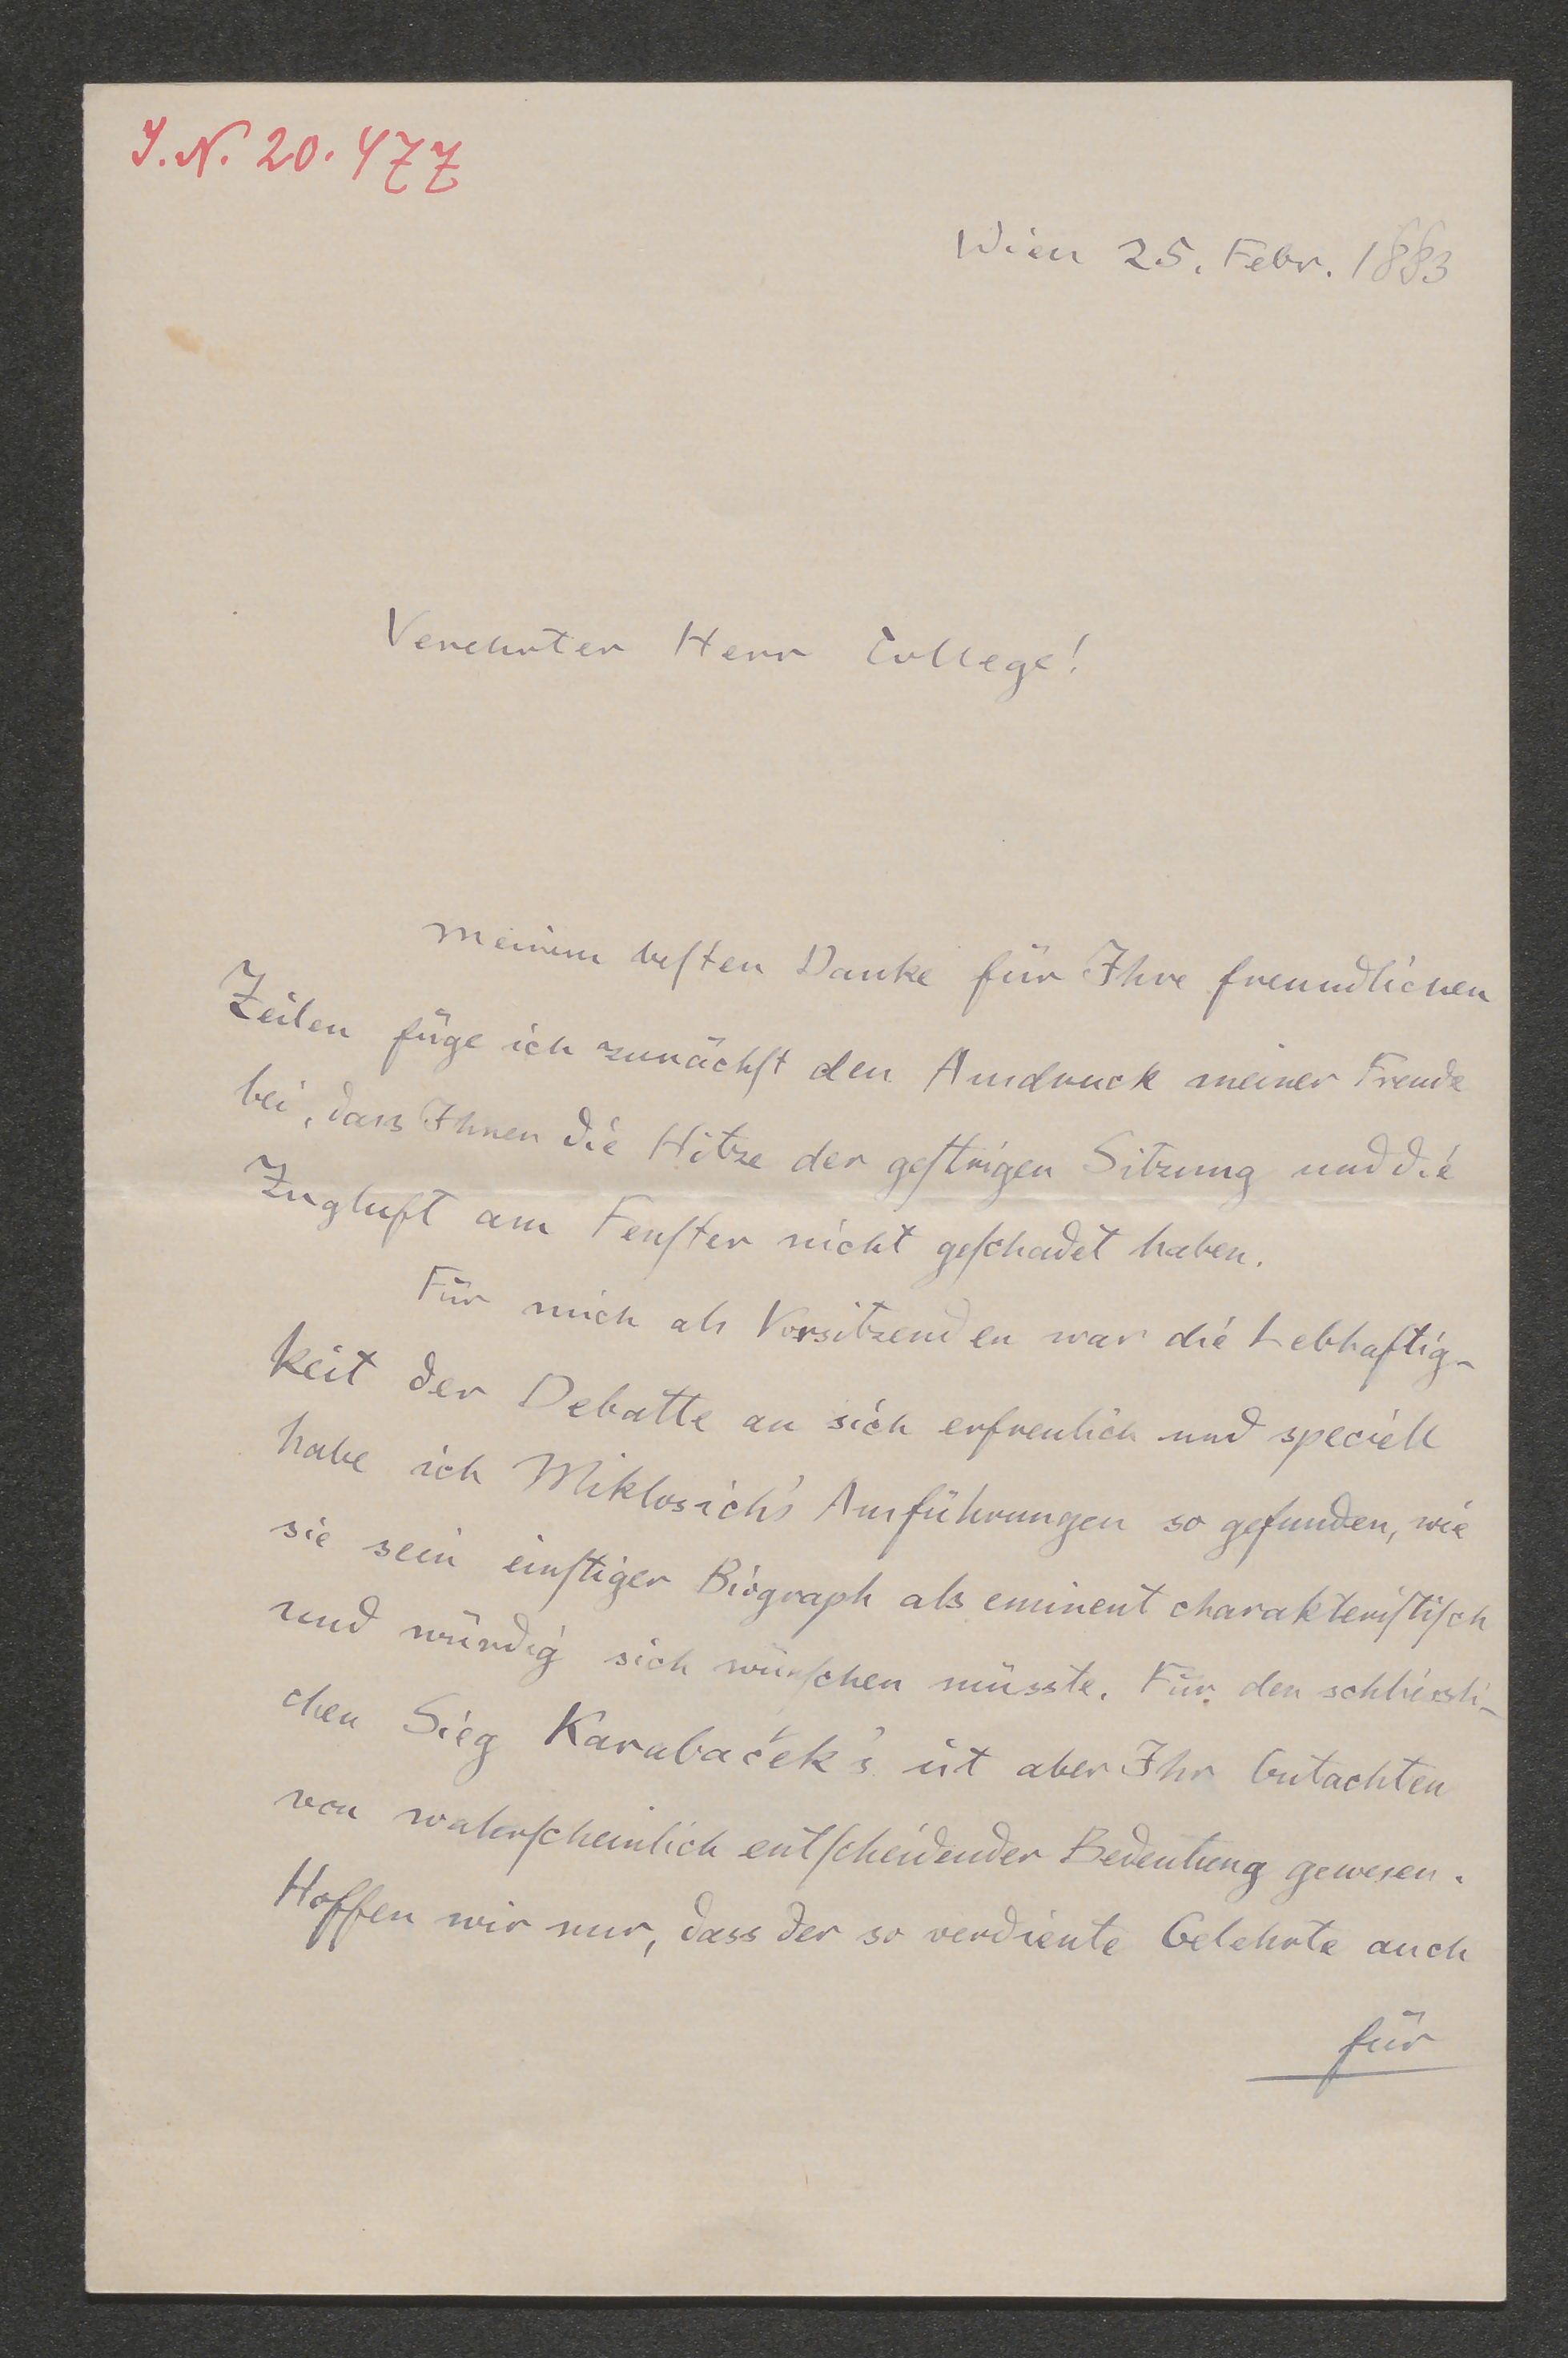 J. N. 20.477
Wien 25. Febr. 1883
Verehrter Herr College!
Meinem beſten Danke für Ihre freundlichen
Zeilen füge ich zunächſt den Ausdruck meiner Freude
bei, dass Ihnen die Hitze der geſtrigen Sitzung und die
Zugluft am Fenſter nicht geſchadet haben.
Für mich als Vorsitzenden war die Lebhaftig-
keit der Debatte an sich erfreulich und speciell
habe ich Miklosich's Ausführungen so gefunden, wie
sie sein einſtiger Biograph als eminent charakteriſtiſch
und würdig sich wünſchen müsste. Für den schliessli-
chen Sieg Karabaček's ist aber Ihr Gutachten
von wahrſcheinlich entſcheidender Bedeutung gewesen.
Hoffen wir nur, dass der so verdiente Gelehrte auch
für